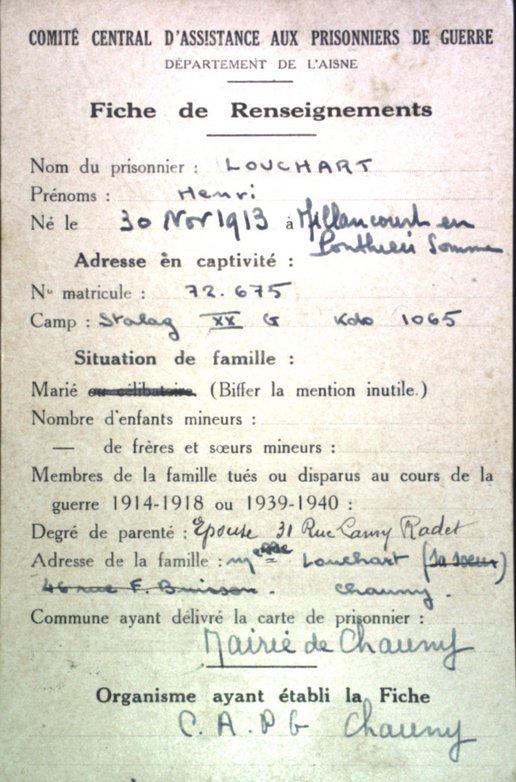 COMITÉ CENTRAL D'ASSISTANCE AUX PRISONNIERS DE GUERRE
DÉPARTEMENT DE L'AISNE
Fiche de Renseignements
Nom du prisonnier : LOUCHART
Prénoms : Henri
Né le 30 Nov 1913 à Millancourt en
Ponthieu Somme
Adresse en captivité :
N° matricule : 72.675
Camp : Stalag XX G Kdo 1065
Situation de famille :
Marié ou célibataire. (Biffer la mention inutile.)
Nombre d'enfants mineurs :
— de frères et sœurs mineurs :
Membres de la famille tués ou disparus au cours de la
guerre 1914-1918 ou 1939-1940 :
Degré de parenté : Epouse 31 Rue Camy Radet
Adresse de la famille : Louchart (sa soeur)
46 rue F. Buisson. Chauny.
Commune ayant délivré la carte de prisonnier :
Mairie de Chauny
Organisme ayant établi la Fiche
C. A. P G Chauny